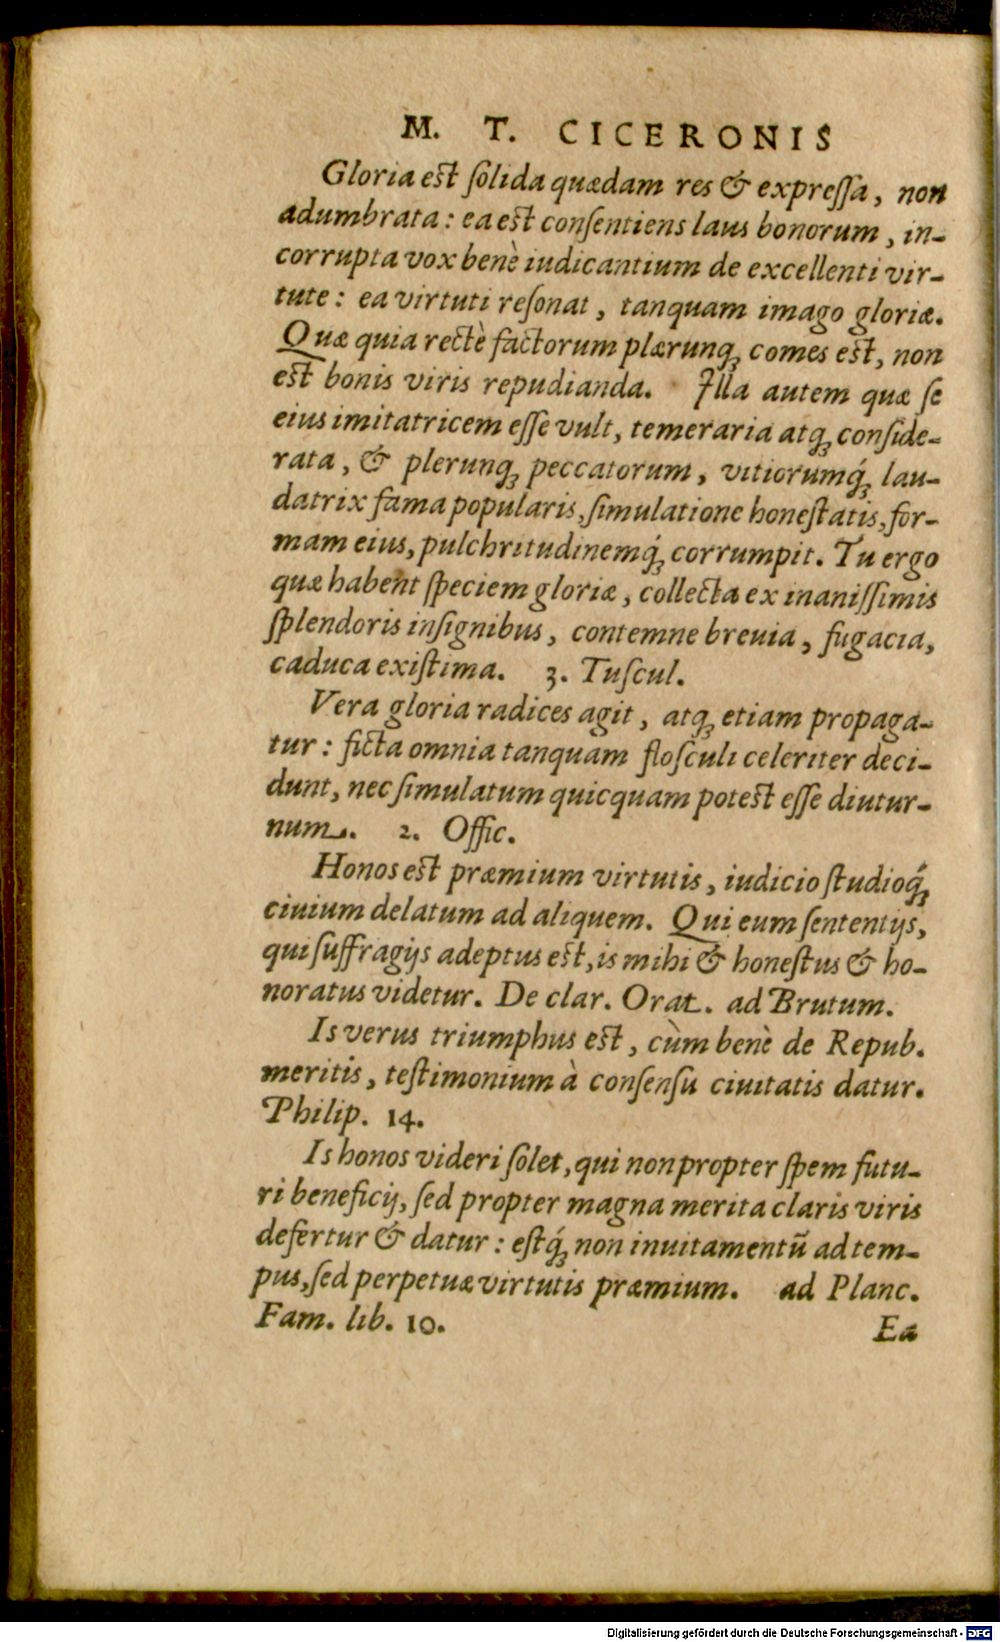 M. T. CICERONIS
Gloria est ſolida quædam res & expreſſa, non
adumbrata: ea est conſentiens laus bonorum, in-
corrupta vox benè iudicantium de excellenti vir-
tute: ea virtuti reſonat, tanquam imago gloriæ.
Quæ quia rectè factorum plærunq; comes est, non
est bonis viris repudianda. Illa autem quæ ſe
eius imitatricem eſſe vult, temeraria atq; conſide-
rata, & plerunq; peccatorum, vitiorumq́; lau-
datrix fama popularis, ſimulatione honeſtatis, for-
mam eius, pulchritudinemq́; corrumpit. Tu ergo
quæ habent ſpeciem gloriæ, collecta ex inaniſſimis
ſplendoris inſignibus, contemne breuia, fugacia,
caduca exiſtima. 3. Tuſcul.
Vera gloria radices agit, atq; etiam propaga-
tur: ficta omnia tanquam floſculi celeriter deci-
dunt, nec ſimulatum quicquam potest eſſe diutur-
num. 2. Offic.
Honos est præmium virtutis, iudicio ſtudioq́;
ciuium delatum ad aliquem. Qui eum ſententijs,
qui ſuffragijs adeptus est, is mihi & honeſtus & ho-
noratus videtur. De clar. Orat. ad Brutum.
Is verus triumphus est, cùm benè de Repub.
meritis, teſtimonium à conſenſu ciuitatis datur.
Philip. 14.
Is honos videri ſolet, qui non propter ſpem futu-
ri beneficij, ſed propter magna merita claris viris
defertur & datur: eſtq́; non inuitamentũ ad tem-
pus, ſed perpetuæ virtutis præmium. ad Planc.
Fam. lib. 10.
Ea
Digitalisierung gefördert durch die Deutsche Forschungsgemeinschaft - DFG